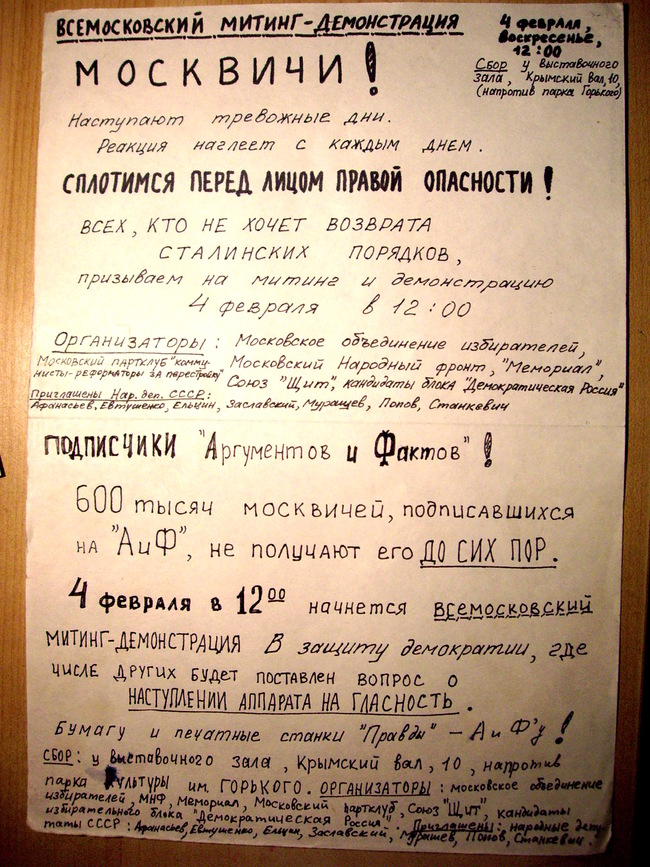 ВСЕМОСКОВСКИЙ МИТИНГ-ДЕМОНСТРАЦИЯ
4 февраля,
воскресенье,
12:00
Сбор у выставочного
зала, Крымский вал, 10,
(напротив парка Горького)
МОСКВИЧИ!
Наступают тревожные дни.
Реакция наглеет с каждым днем.
СПЛОТИМСЯ ПЕРЕД ЛИЦОМ ПРАВОЙ ОПАСНОСТИ!
ВСЕХ, КТО НЕ ХОЧЕТ ВОЗВРАТА
СТАЛИНСКИХ ПОРЯДКОВ,
призываем на митинг и демонстрацию
4 февраля в 12:00
Организаторы: Московское объединение избирателей,
Московский партклуб "комму-
нисты-реформаторы за перестройку"
Московский Народный фронт, "Мемориал",
Союз "Щит", кандидаты блока "Демократическая Россия"
Приглашены Нар. деп. СССР:
Афанасьев, Евтушенко, Ельцин, Заславский, Мурашев, Попов, Станкевич
ПОДПИСЧИКИ "Аргументов и Фактов"!
600 тысяч москвичей, подписавшихся
на "АиФ", не получают его ДО СИХ ПОР.
4 февраля в 12 00 начнется ВСЕМОСКОВСКИЙ
МИТИНГ-ДЕМОНСТРАЦИЯ В защиту демократии, где
числе других будет поставлен вопрос о
НАСТУПЛЕНИИ АППАРАТА НА ГЛАСНОСТЬ.
Бумагу и печатные станки "Правды" – АиФ'у!
СБОР: у выставочного зала, Крымский вал, 10, напротив
парка Культуры им. ГОРЬКОГО. ОРГАНИЗАТОРЫ: московское объединение
избирателей, МНФ, Мемориал, Московский партклуб, Союз "ЩИТ", кандидаты
избирательного блока "Демократическая Россия". Приглашены: народные депу-
таты СССР: Афанасьев, Евтушенко, Ельцин, Заславский, Мурашев, Попов, Станкевич.